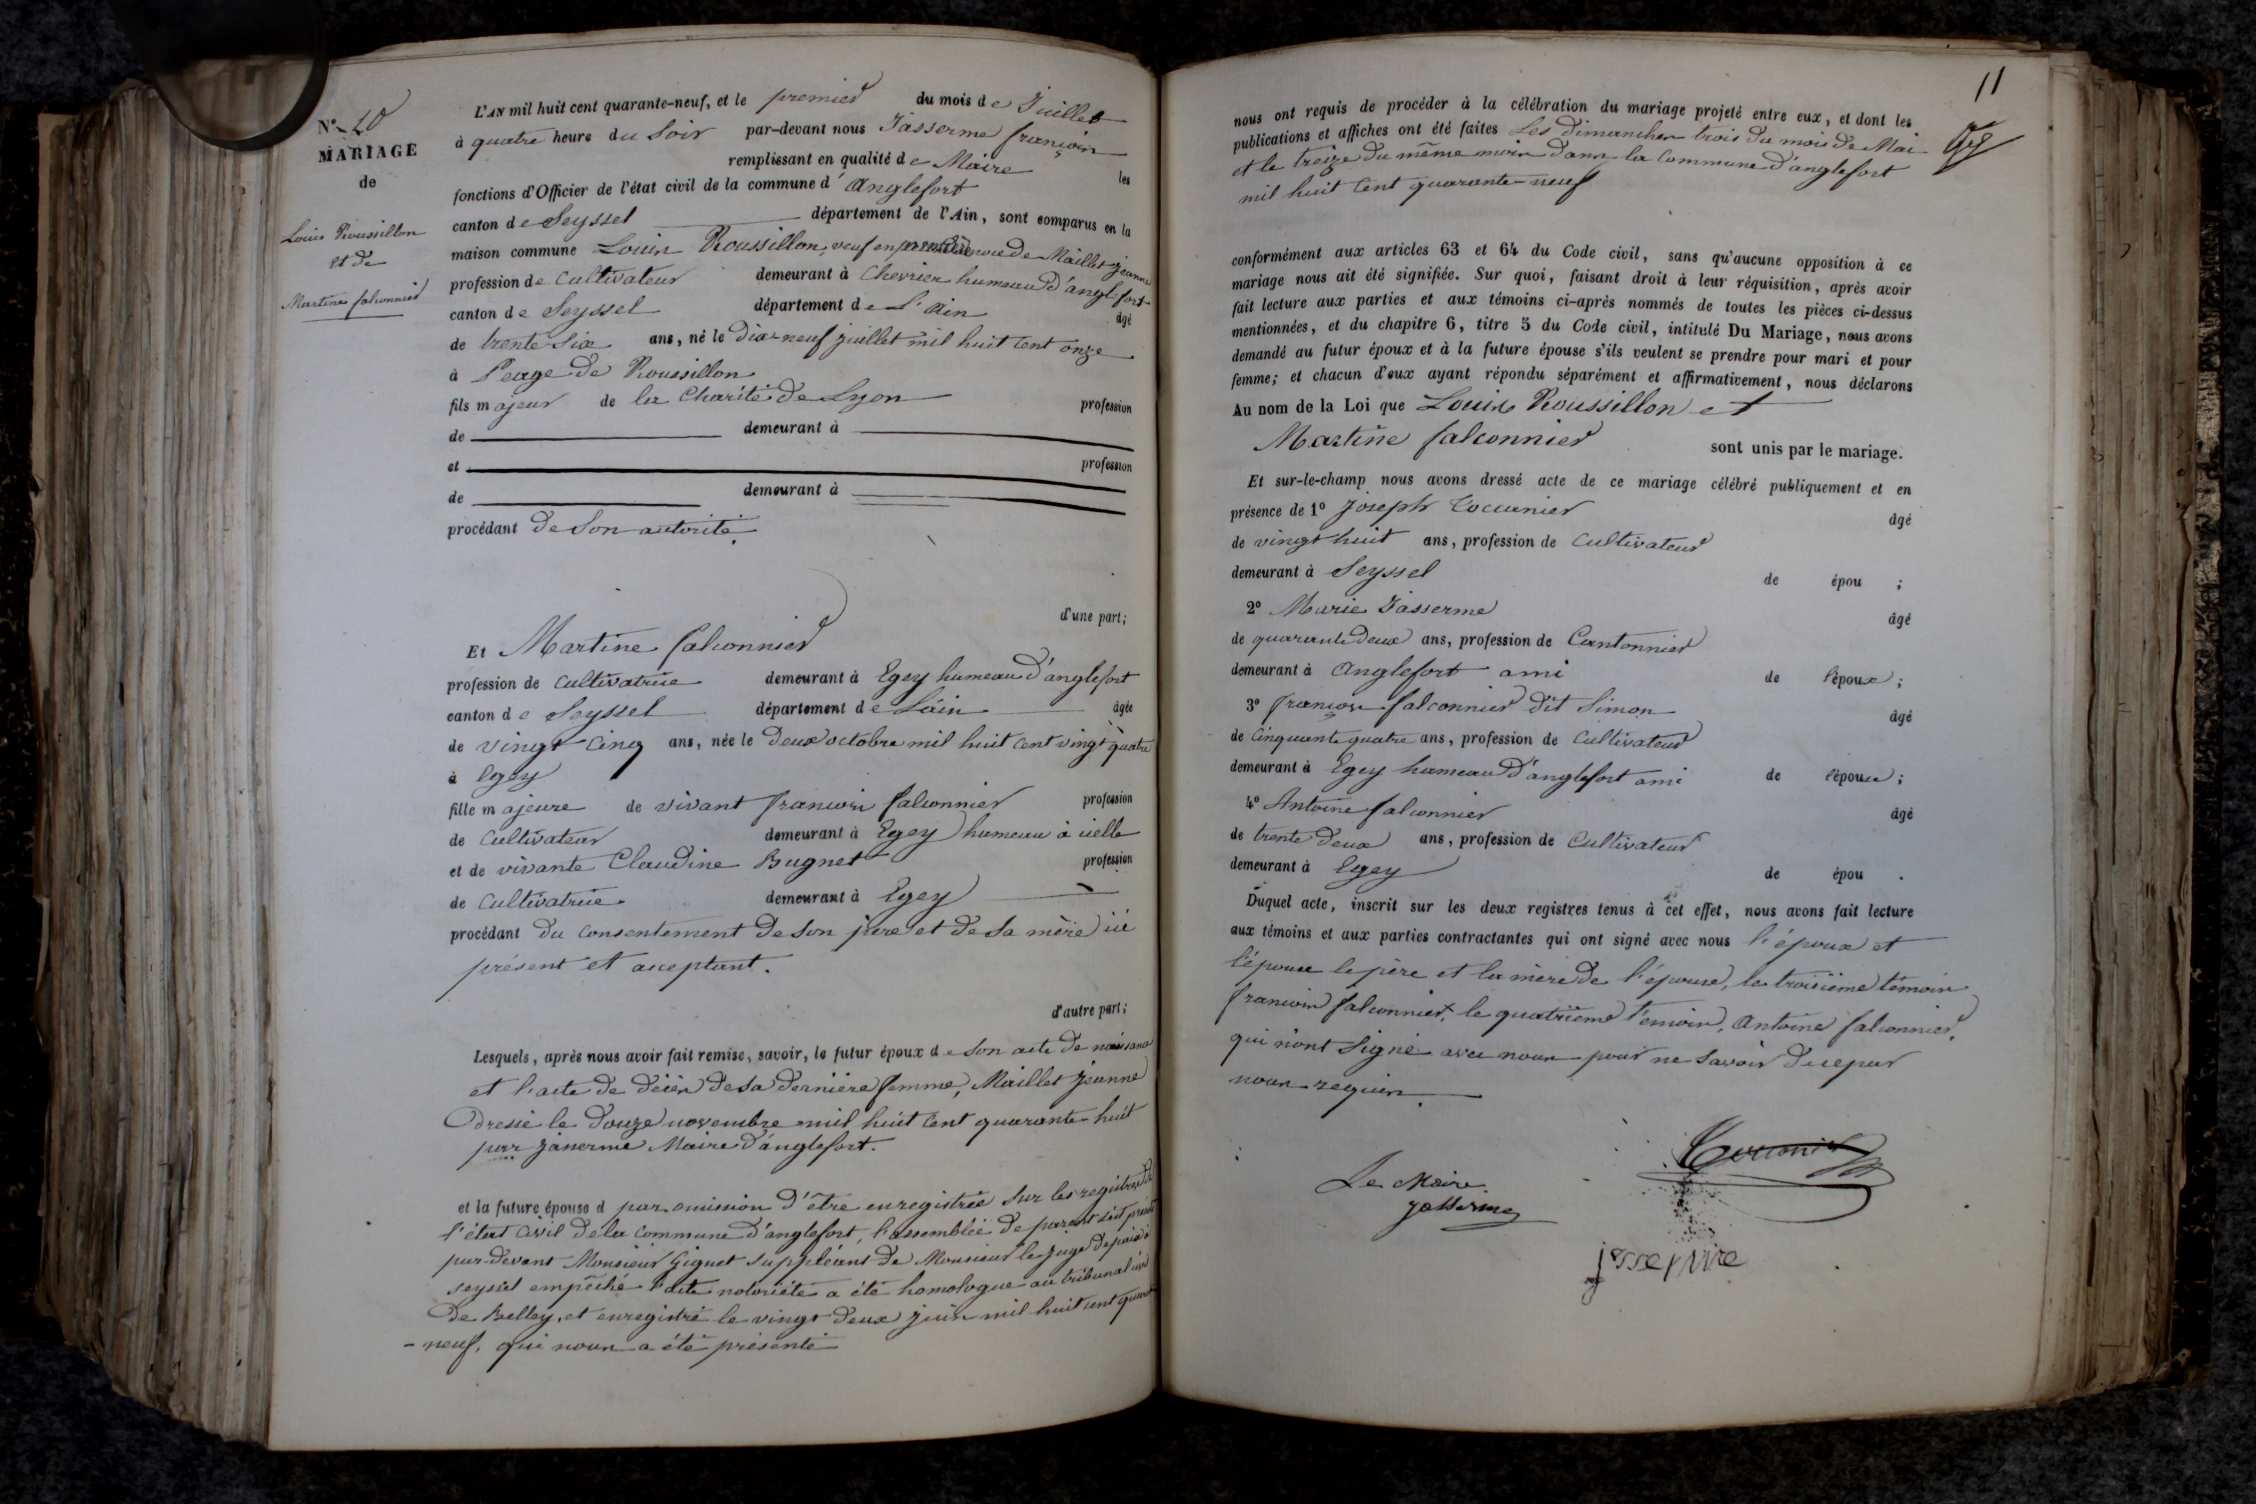 N.º 20
MARIAGE
de
Louis Roussillon
et de
Martine falconnier
L'AN mil huit cent quarante-neuf, et le premier du mois de Juillet
à quatre heure du Soir par-devant nous Jasserme françois
remplissant en qualité de Maire les
fonctions d'Officier de l'état civil de la commune d'anglefort
canton de Seyssel département de l'Ain, sont comparus en la
maison commune Louis Roussillon, veuf en de Maillet jeanne
profession de cultivateur demeurant à Chevrier humeau d'anglefort
canton de Seyssel département de L'ain âgé
de trente Six ans, né le Dix-neuf juillet mil huit cent onze
à Peage de Roussillon
fils majeur de la Charité de Lyon profession
de demeurant à
et profession
de demeurant à
procédant de Son autorité.
d'une part;
Et Martine falconnier
profession de cultivatrice demeurant à Egey humeau d'anglefort
canton de Seyssel département de Láin âgée
de vingt Cinq ans, née le Deux octobre mil huit cent vingt quatre
à Egey
fille majeure de vivant francois falconnier profession
de cultivateur demeurant à Egey humeau à icelle
et de vivante Claudine Bugnet profession
de cultivatrice demeurant à Egey
procédant du consentement de son père et de sa mère ici
présent et acceptant.
d'autre part;
Lesquels, après nous avoir fait remise, savoir, le futur époux de son acte de naissance
et l'acte de décès de sa dernière femme, Maillet Jeanne
Dressé le Douze novembre mil huit cent quarante-huit
par Jasserme Maire d'anglefort.
et la future épouse d par omission d'être enregistrée sur les registres de
l'état civil de la commune d'anglefort, l'assemblée de parent s'est présenté
par-devant Monsieur Giguet suppléant de Monsieur le juge de paix à
seyssel empêché l'acte notoriété a été homologue au tribunal civil
De Belley, et enregistré le vingt deux juin mil huit cent quarante
-neuf, qui nous a été présenté
11
nous ont requis de procéder à la célébration du mariage projeté entre eux, et dont les
publications et affiches ont été faites Les dimanches trois du mois de Mai
et le treize du même mois dans la commune d'anglefort
mil huit cent quarante-neuf
conformément aux articles 63 et 64 du Code civil, sans qu'aucune opposition à ce
mariage nous ait été signifiée. Sur quoi, faisant droit à leur réquisition, après avoir
fait lecture aux parties et aux témoins ci-après nommés de toutes les pièces ci-dessus
mentionnées, et du chapitre 6, titre 5 du Code civil, intitulé Du Mariage, nous avons
demandé au futur époux et à la future épouse s'ils veulent se prendre pour mari et pour
femme; et chacun d'eux ayant répondu séparément et affirmativement, nous déclarons
Au nom de la Loi que Louis Roussillon et
Martine falconnier sont unis par le mariage.
Et sur-le-champ nous avons dressé acte de ce mariage célébré publiquement et en
présence de 1º Joseph Coccunier âgé
de vingt huit ans, profession de cultivateur
demeurant à Seyssel de épou ;
2º Marie Jasserme âgé
de quarante Deux ans, profession de Cantonnier
demeurant à Anglefort ami de l'épouse ;
3º françois falconnier dit Simon âgé
de cinquante quatre ans, profession de cultivateur
demeurant à Egey hameau d'anglefort ami de l'épouse ;
4º Antoine falconnier âgé
de trente deux ans, profession de cultivateur
demeurant à Egey de épou .
Duquel acte, inscrit sur les deux registres tenus à cet effet, nous avons fait lecture
aux témoins et aux parties contractantes qui ont signé avec nous l'époux et
l'épouse le père et la mère de l'épouse, le troisième témoin
francois falconnier, le quatrième témoin, Antoine falconnier,
qui n'ont signé avec nous pour ne savoir de ce par
nous requis.
Le Maire
Jasserme
jasserme